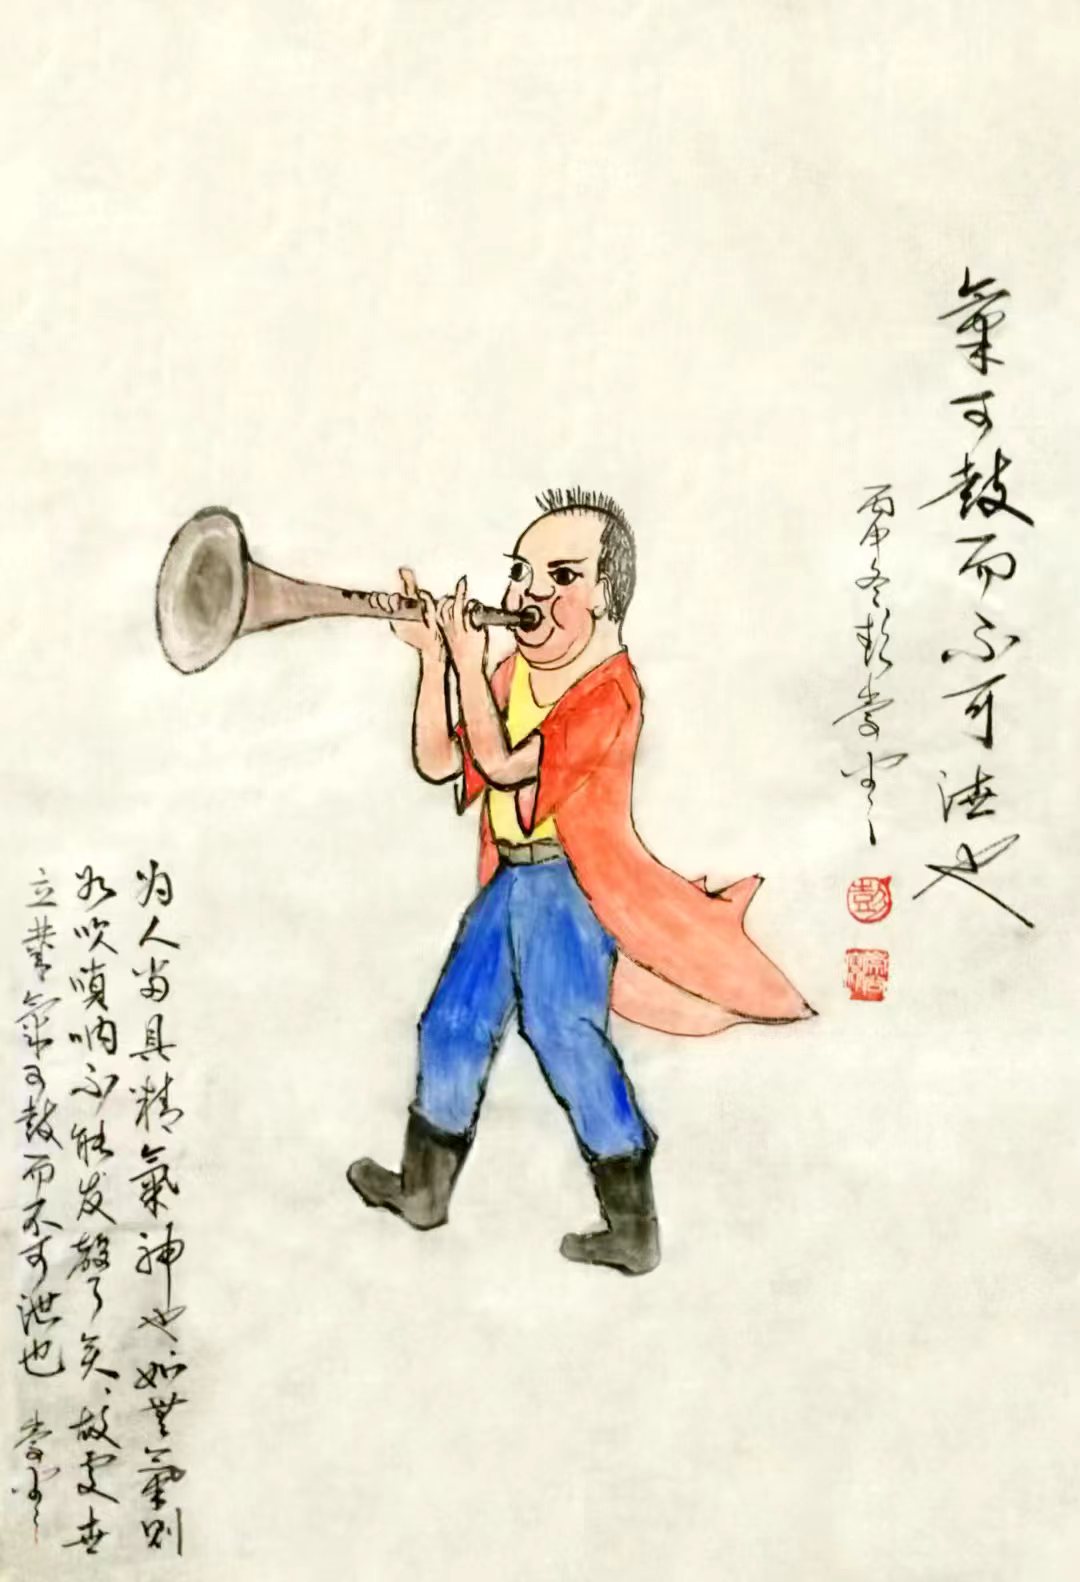 氣可鼓而不可洩也
丙申冬彭崇
彭
为人当具精氣神也如無氣则
如吹嗩呐不能发聲了矣、故处世
立業氣可鼓而不可泄也 崇